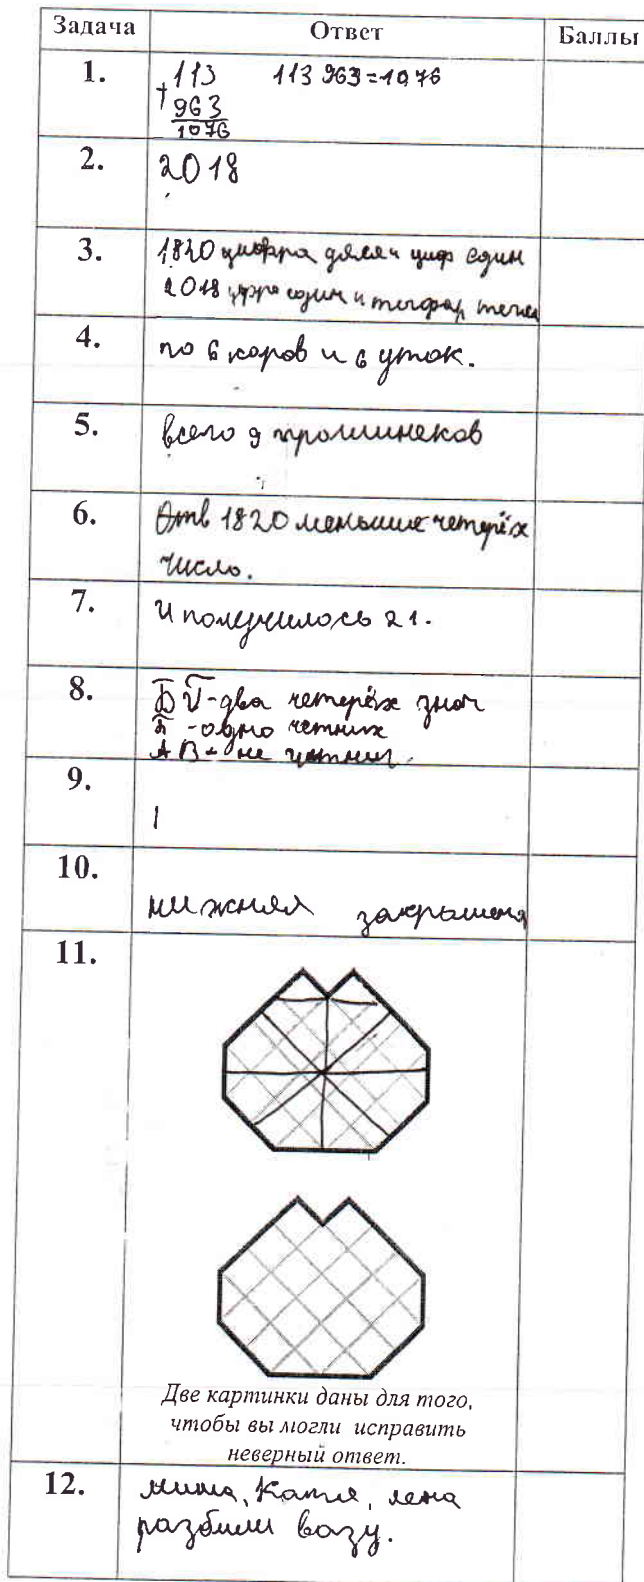 Задача Ответ Баллы
1. 113 113 963=1076
+
963
1076
2. 2018
3. 1820 цифра циф один
2018 один и
4. по 6 коров и 6 уток.
5. всего 9
6. Отв 1820 меньше четерёх
число.
7. И получилось 21.
8. два четерёх знач
- одно четних
А В - не
9. 1
10. нижняя закрышена
11.
Две картинки даны для того,
чтобы вы могли исправить
неверный ответ.
12. миша, Катя, лена
разбили вазу.